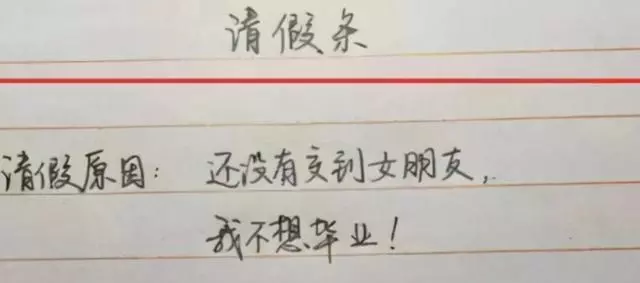 请假条
请假原因：还没有交到女朋友，
我不想毕业！